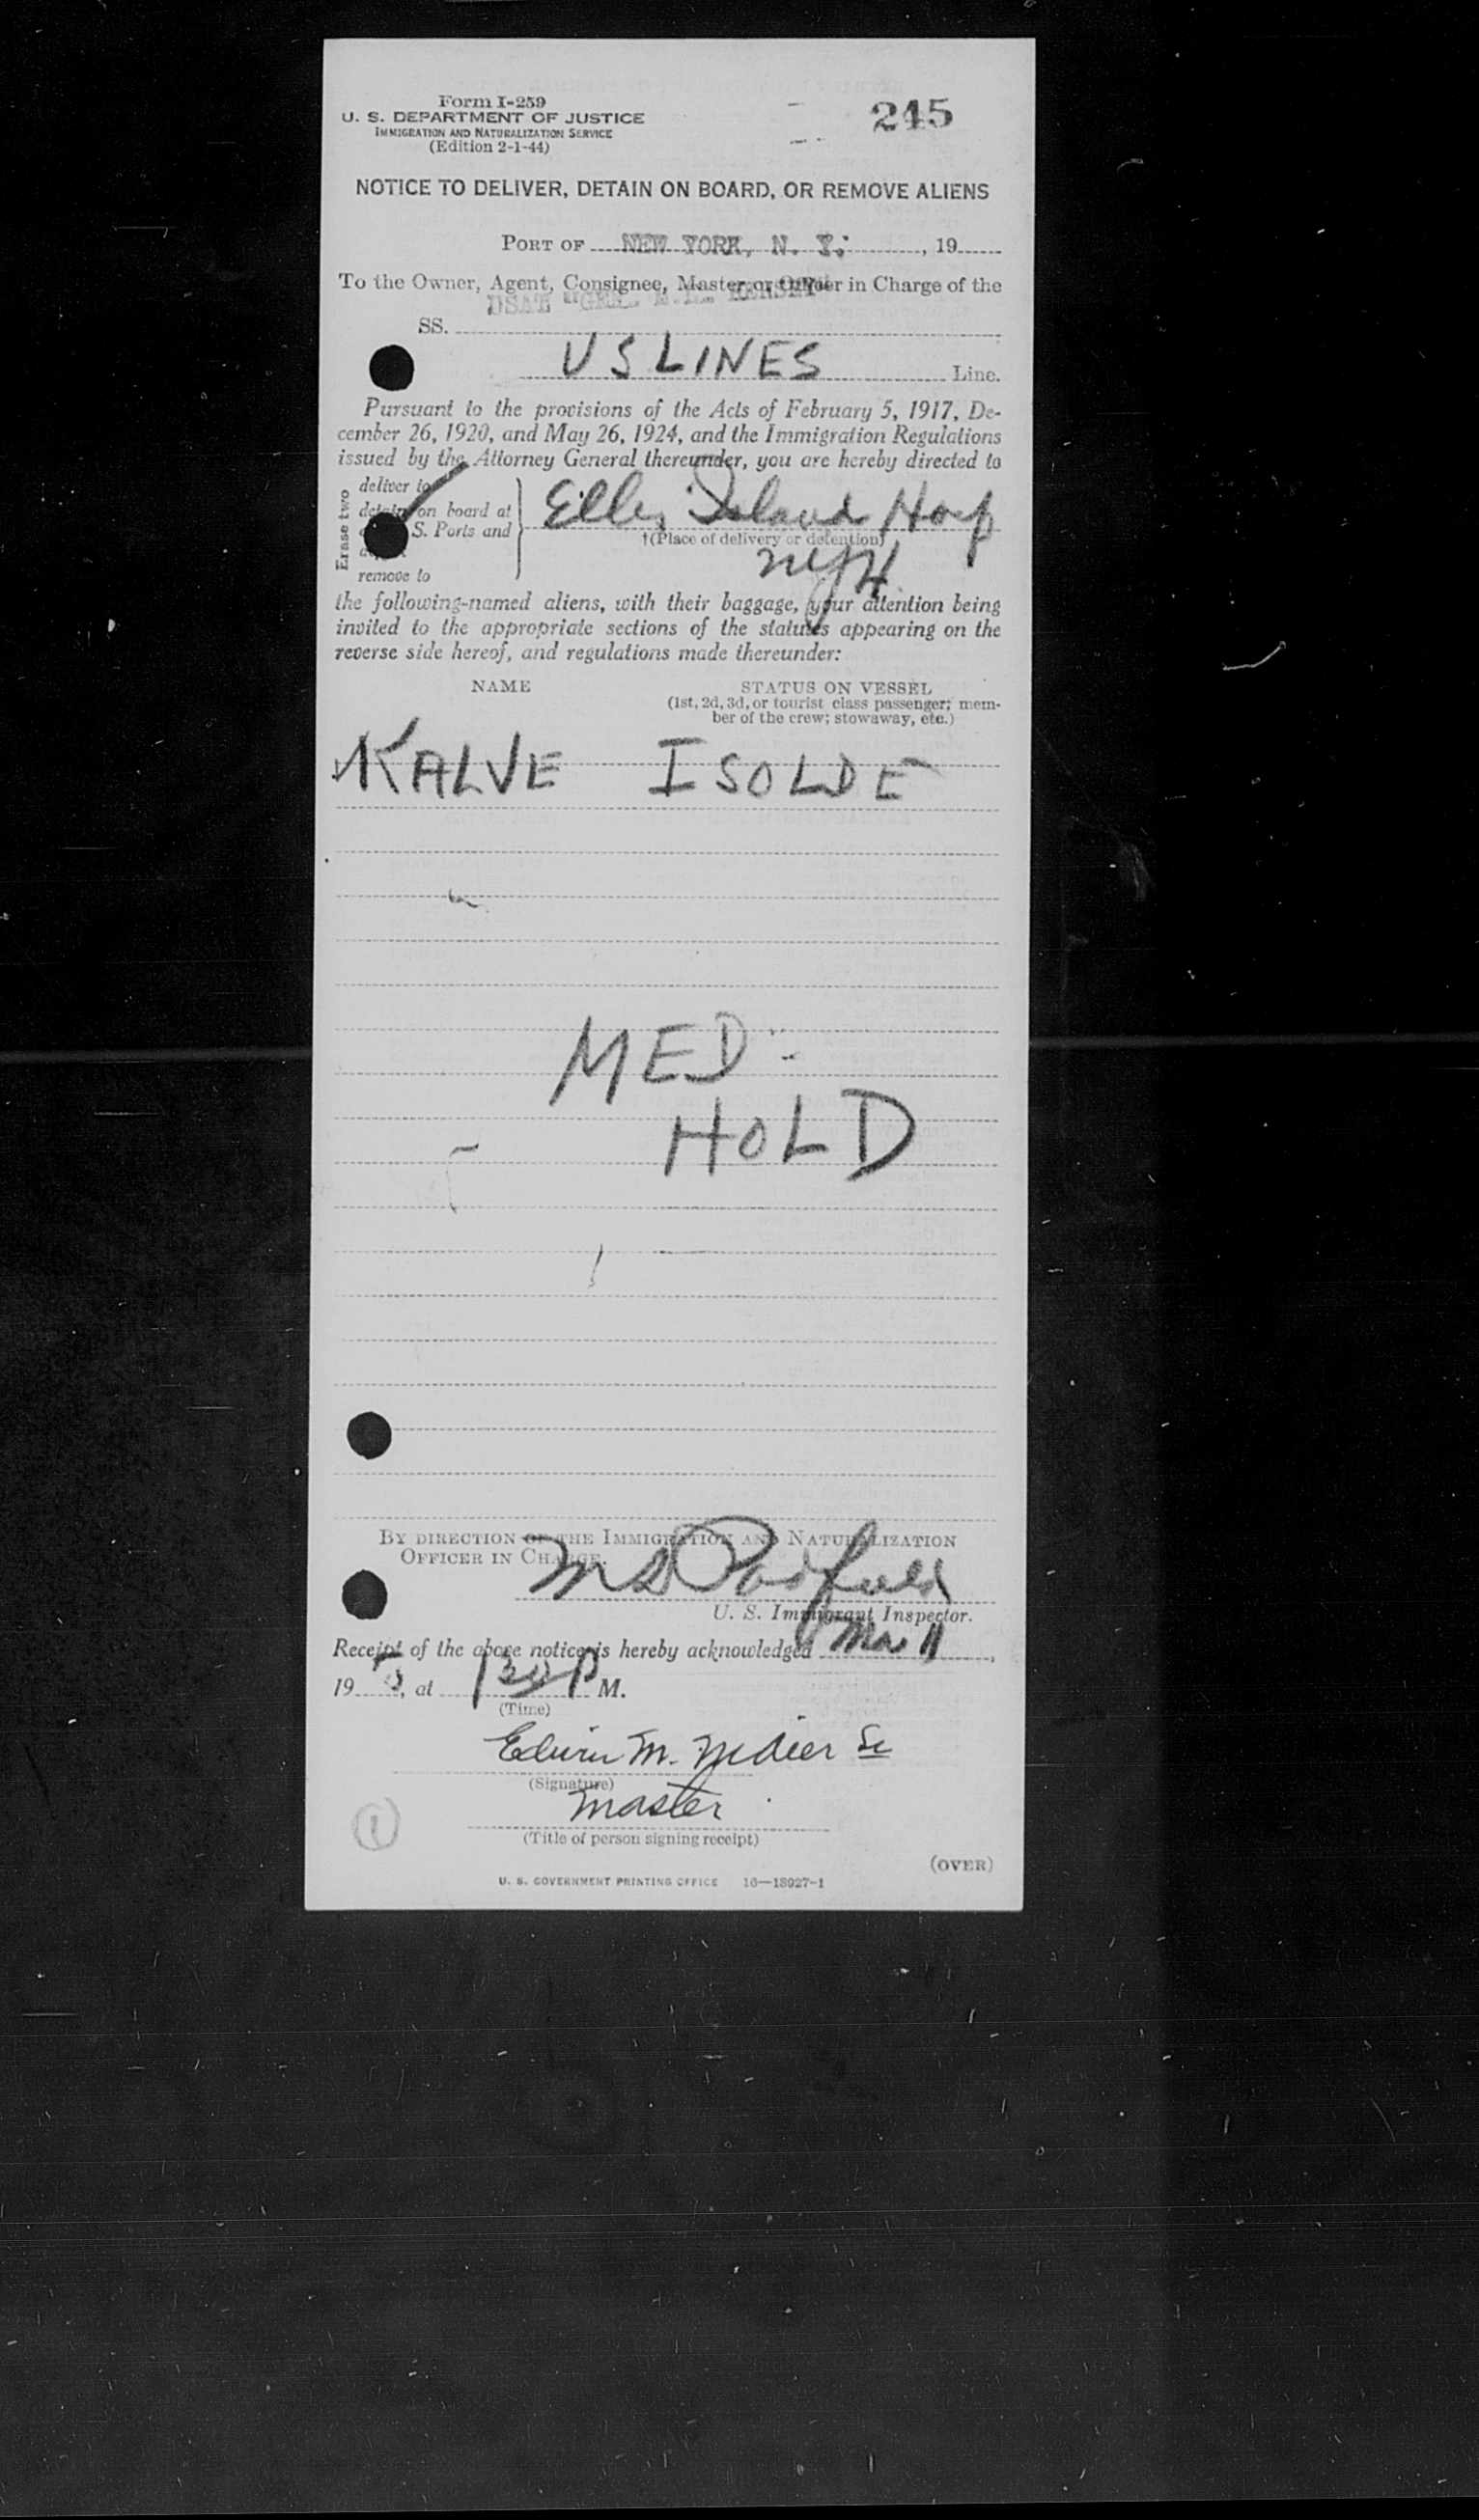 Form I-259
U. S. DEPARTMENT OF JUSTICE
IMMIGRATION AND NATURALIZATION SERVICE
(Edition 2-1-44)
245
NOTICE TO DELIVER, DETAIN ON BOARD, OR REMOVE ALIENS
PORT OF NEW YORK, N. Y. , 19
To the Owner, Agent, Consignee, Master, or Officer in Charge of the
SS.
U S LINES Line.
Pursuant to the provisions of the Acts of February 5, 1917, De-
cember 26, 1920, and May 26, 1924, and the Immigration Regulations
issued by the Attorney General thereunder, you are hereby directed to
Erase two
deliver to
detain on board at
S. Ports and
remove to
Ellis Island Hosp
†(Place of delivery or detention)
NYH
the following-named aliens, with their baggage, your attention being
invited to the appropriate sections of the statutes appearing on the
reverse side hereof, and regulations made thereunder:
NAME STATUS ON VESSEL
(1st, 2d, 3d, or tourist class passenger; mem-
ber of the crew; stowaway, etc.)
KALVE ISOLDE
MED:
HOLD
BY DIRECTION OF THE IMMIGRATION AND NATURALIZATION
OFFICER IN CHARGE.
U. S. Immigrant Inspector.
Receipt of the above notice is hereby acknowledged Mar 11,
19 , at 130 P M.
(Time)
Edwin M.
(Signature)
Master
(Title of person signing receipt)
1
(OVER)
U. S. GOVERNMENT PRINTING OFFICE 16—18927-1